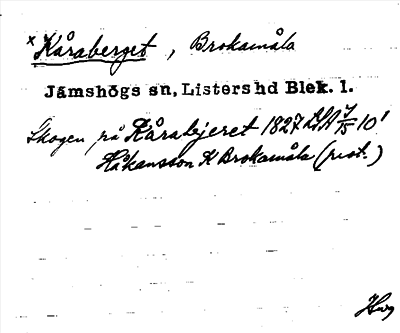 x Kåraberget, Brokamåla
Jämshögs sn, Listers hd Blek. l.
Skogen på Kårabjeret 1827 LSA J/15 10'
Håkansson K Brokamåla (rest.)